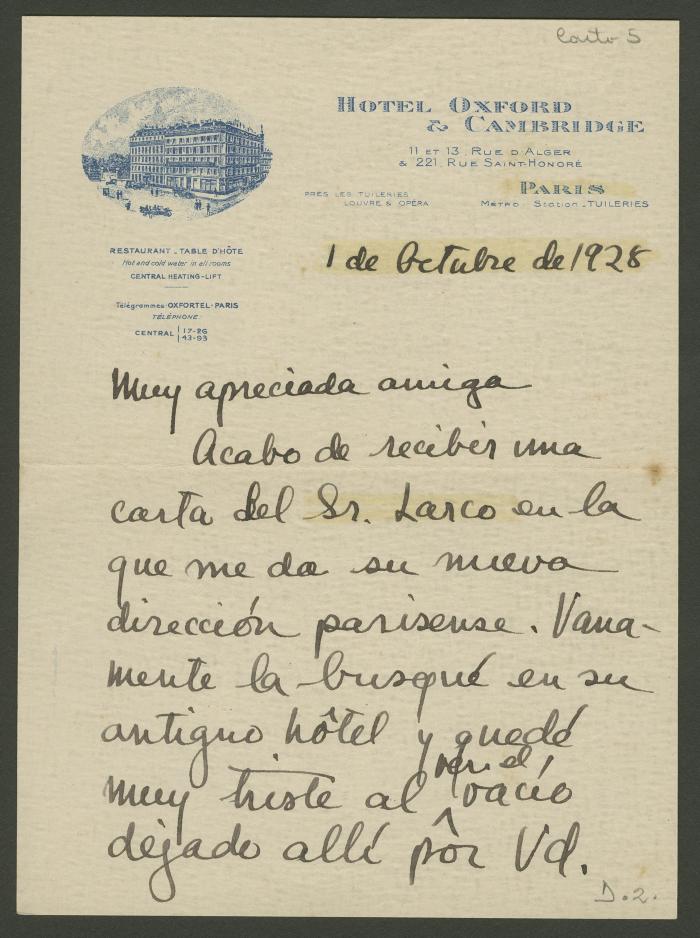 Carto 5
HOTEL OXFORD
& CAMBRIDGE
11 ET 13, RUE D'ALGER
& 221, RUE SAINT-HONORÉ
PRÈS LES TUILERIES
LOUVRE & OPÉRA
PARIS
Métro-Station-TUILERIES
RESTAURANT-TABLE D'HÔTE
Hot and cold water in all rooms
CENTRAL HEATING-LIFT
Télégrammes: OXFORTEL-PARIS
TÉLÉPHONE:
CENTRAL 17-26
43-93
1 de Octubre de 1928
Muy apreciada amiga
Acabo de recibir una
carta del Sr. Larco en la
que me da su nueva
dirección parisense. Vana-
mente la busqué en su
antiguo hôtel y quedé
muy triste al ver el vacío
dejado allí por Vd.
D.2.